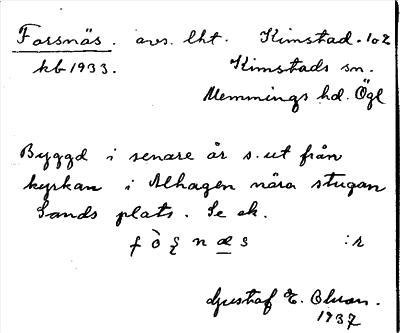 Forsnäs. avs. lht. Kimstad. 1o2
kb 1933. Kimstads sn.
Memmings hd. Ögl
Byggd i senare år s.ut från
kyrkan i Alhagen nära stugan
Sands plats. Se ek.
f ò ʂ n æ s :r
Gustaf E. Olson.
1937